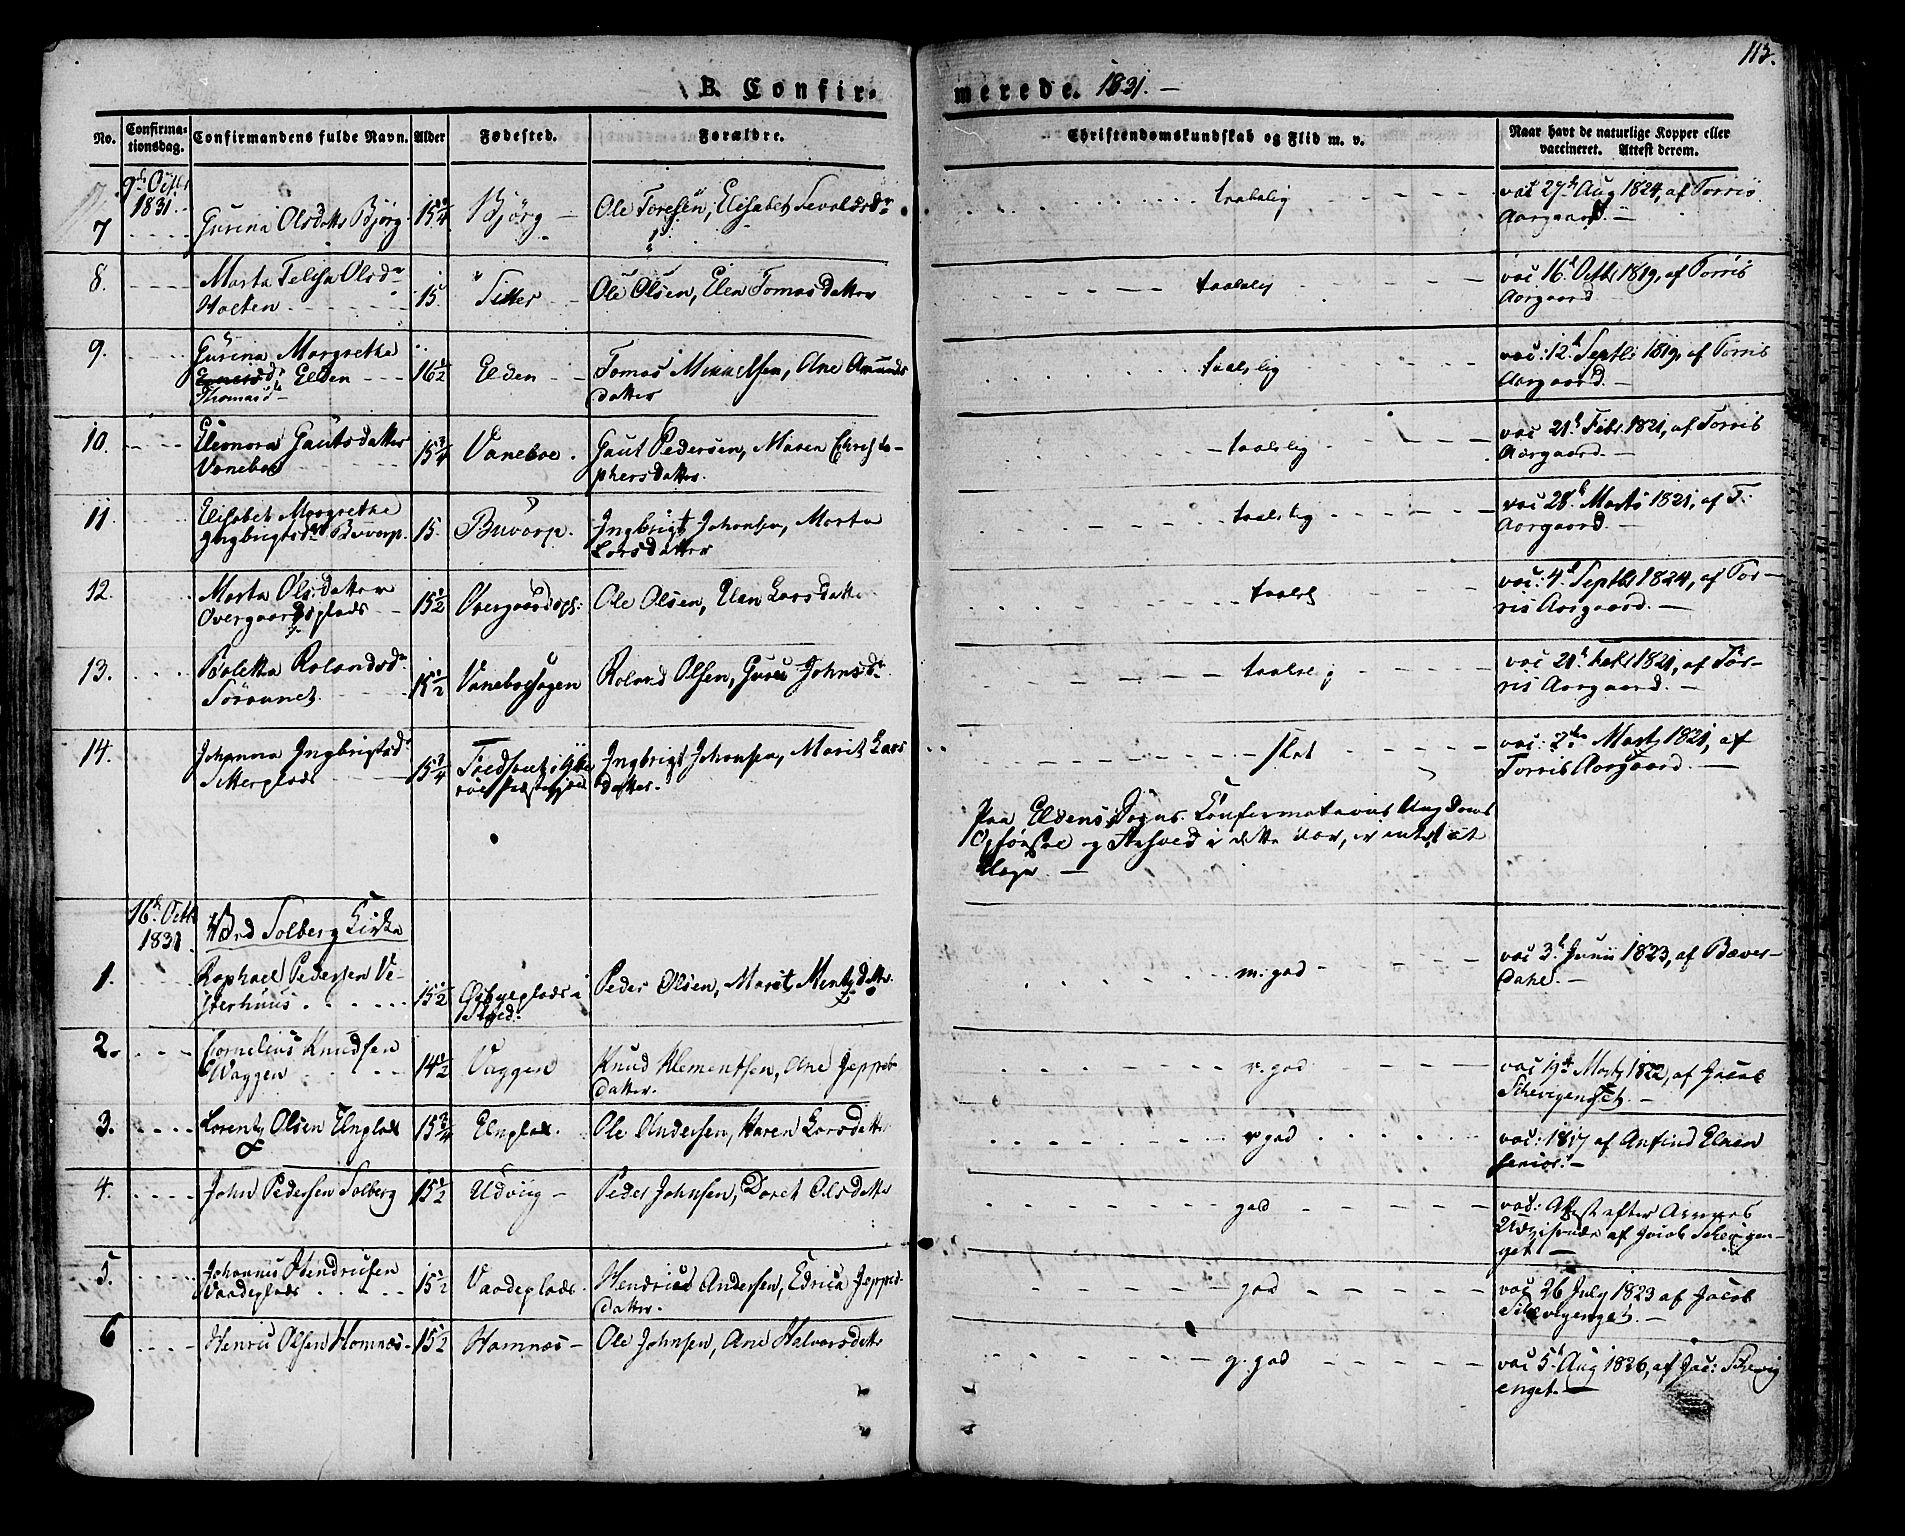 113.
B. Confirmerede. 1831. —
No. Confirmationsdag. Confirmandens fulde Navn. Alder Fødested. Forældre. Christendomskundskab og Flid m. v. Naar havt de naturlige Kopper eller vaccineret. Attest derom.
9h Octbr 1831.
7 Gurina Olsdatter Bjørg 15 1/4 Bjørg — Ole Toresen, Elisabet Sevaldsdr taalelig vac 27h Aug 1824, af Torris Aargaard. —
8. Marta Olsdr 15 Sitter Ole Olsen, Elen Tomasdatter taalelig vac 16h Octbr 1819, af Torris Aargaard
9. Gurina Margrethe Thomasd Elden 16 1/2 Elden Tomas Mikkelsen, Ane Amundsdatter taalelig vac: 12h Septbr 1819, af Torris Aargaard. —
10. Eleonora Gautsdatter Vaneboe 15 3/4 Vaneboe. Gaut Pedersen, Maren Christophersdatter. taalelig vac 21h Febr 1821, af Torris Aargaard. —
11. Elisabet Margrethe Ingbrigtsdr Buvarp. 15. Buvarp. Ingbrigt Johansen, Marta Larsdatter taalelig vac 28h Marts 1821, af T. Aargaard. —
12. Marta Olsdatter Overgaardsplads 15 1/2 Overgaardspl: Ole Olsen, Elen Larsdatter taalel vac: 4h Septbr 1824, af Torris Aargaard. —
13. Boletta Rolandsdr 15 1/2 Roland Olsen, Guru Johnsdr taalelig vac 21h 1821, af Torris Aargaard. —
14. Johanna Ingbrigtsd Sitterplads 15 3/4 Ingbrigt Johansen, Marit Larsdatter. slet vac: 2den Marts 1821, af Torris Aargaard. —
Paa Eldens Sogns Confirmations Ungdoms Opførsel og i dette Aar, er intet at klage. —
16h Octbr 1831 Ved Solberg Kirke
1. Raphael Pedersen Vesterhuus 15 1/2 Peder Olsen, Marit Mentzdatter. m. god vac 3h Junii 1823, af Bæverdahl. —
2. Cornelius Knudsen Vaggen 14 1/2 Vaggen Knud Klementsen, Ane Jeppedatter. g. god vac 19de Marts 1822, af Jacob
3. Lorentz Olsen Elnplads 15 3/4 Elnplads. Ole Andersen, Karen Larsdatter god vac: 1817 af Anfind Elnen senior. —
4. John Pedersen Solberg 15 1/2 Udviig — Peder Johnsen, Doret Olsdatter god vac: Attest efter af Jacob
5. Johannes Hendricsen Vaadeplads 15 1/2 Vaadeplads. Hendrick Andersen, Edrica Jeppedatter. god vac 26 July 1823 af Jacob
6 Henric Olsen Homnæs 15 1/2 Hamnæs — Ole Johnsen, Ane Halvorsdatter g. god vac 5h Aug 1826, af Jac: